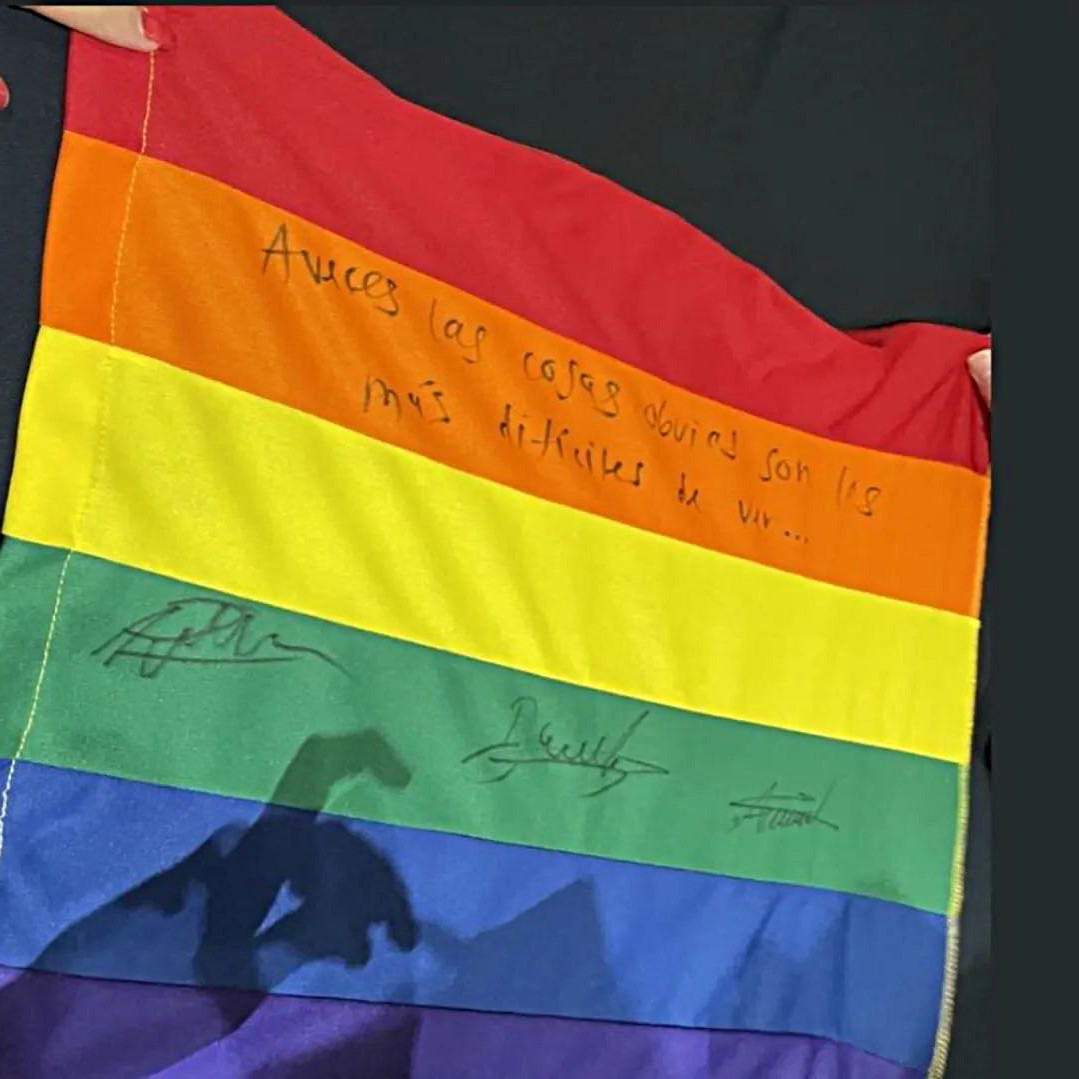 Aveces las cosas obvias son las
más difíciles de ver...